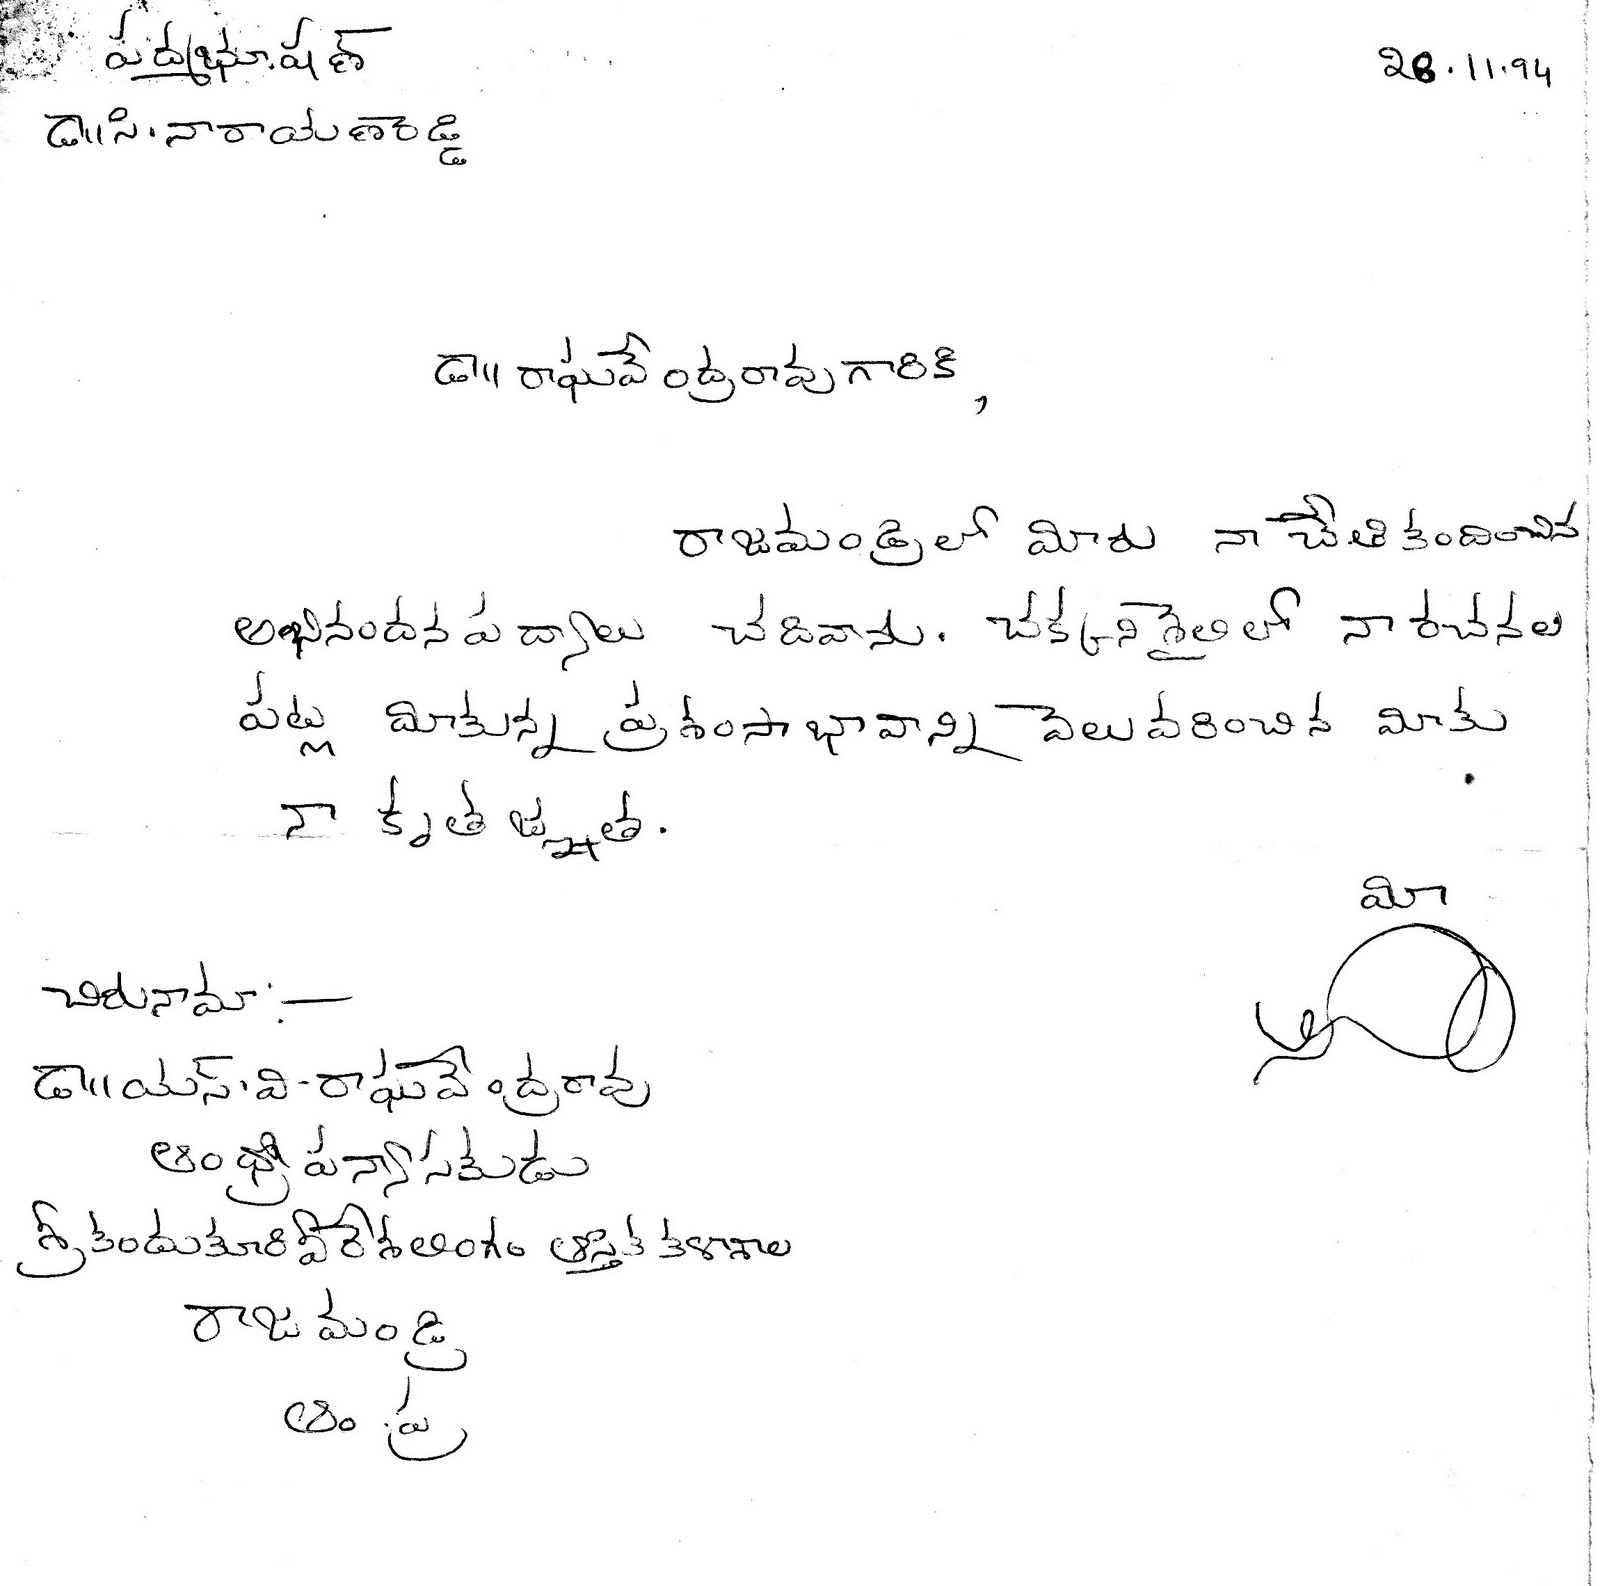 పద్మభూషణ్
28.11.94
డా॥ సి. నారాయణరెడ్డి
డా॥ రాఘవేంద్రరావుగారికి,
రాజమండ్రిలో మీరు నా చేతికందించిన
అభినందనపద్యాలు చదివాను. చక్కనిశైలిలో నా రచనల
పట్ల మీకున్న ప్రశంసాభావాన్ని వెలువరించిన మీకు
నా కృతజ్ఞత.
మీ
చిరునామా :—
డా॥ యస్. వి. రాఘవేంద్రరావు
ఆంధ్రోపన్యాసకుడు
శ్రీకందుకూరివీరేశలింగం ఆస్తిక కళాశాల
రాజమండ్రి
ఆం.ప్ర